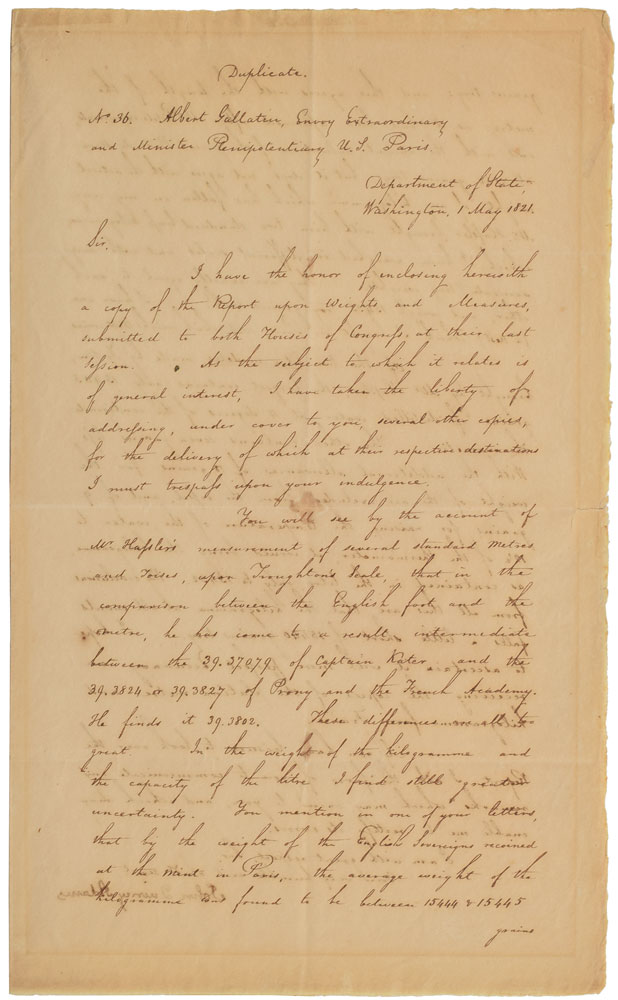 Duplicate.
No. 36. Albert Gallatin, Envoy Extraordinary
and Minister Plenipotentiary U.S. Paris.
Department of State,
Washington, 1 May 1821.
Sir.
I have the honor of inclosing herewith
a copy of the Report upon Weights and Measures,
submitted to both Houses of Congress at their last
Session. As the subject to which it relates is
of general interest, I have taken the liberty of
addressing, under cover to you, several other copies,
for the delivery of which at their respective destinations
I must trespass upon your indulgence.
You will see by the account of
Mr. Hassler's measurement of several standard Metres
and Toises, upon Troughton's Scale, that in the
comparison between the English foot and the
metre, he has come to a result intermediate
between the 39.37079 of Captain Kater and the
39.3824 or 39.3827 of Prony and the French Academy.
He finds it 39.3802. These differences are all too
great. In the weight of the kilogramme and
the capacity of the litre I find still greater
uncertainty. You mention in one of your letters,
that by the weight of the English Sovereigns received
at the Mint in Paris, the average weight of the
kilogramme was found to be between 15444 & 15445
grains